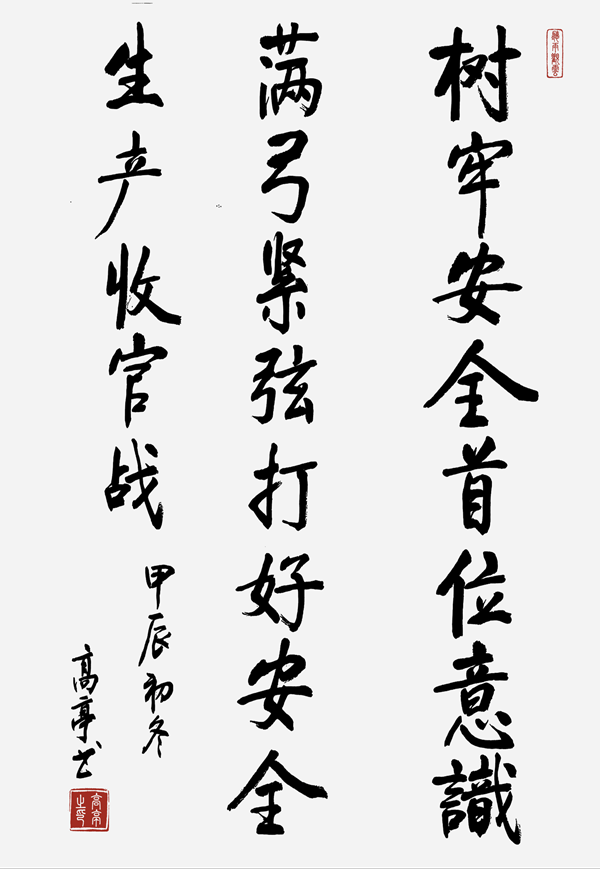 树牢安全首位意識
满弓紧弦打好安全
生产收官战
甲辰初冬
高亭书
高亭之印